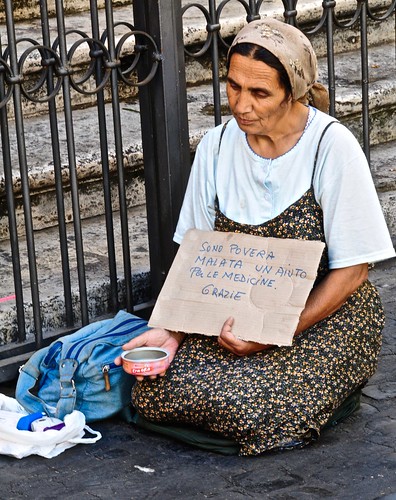 SONO POVERA
MALATA UN AIUTO
PER LE MEDICINE.
GRAZIE